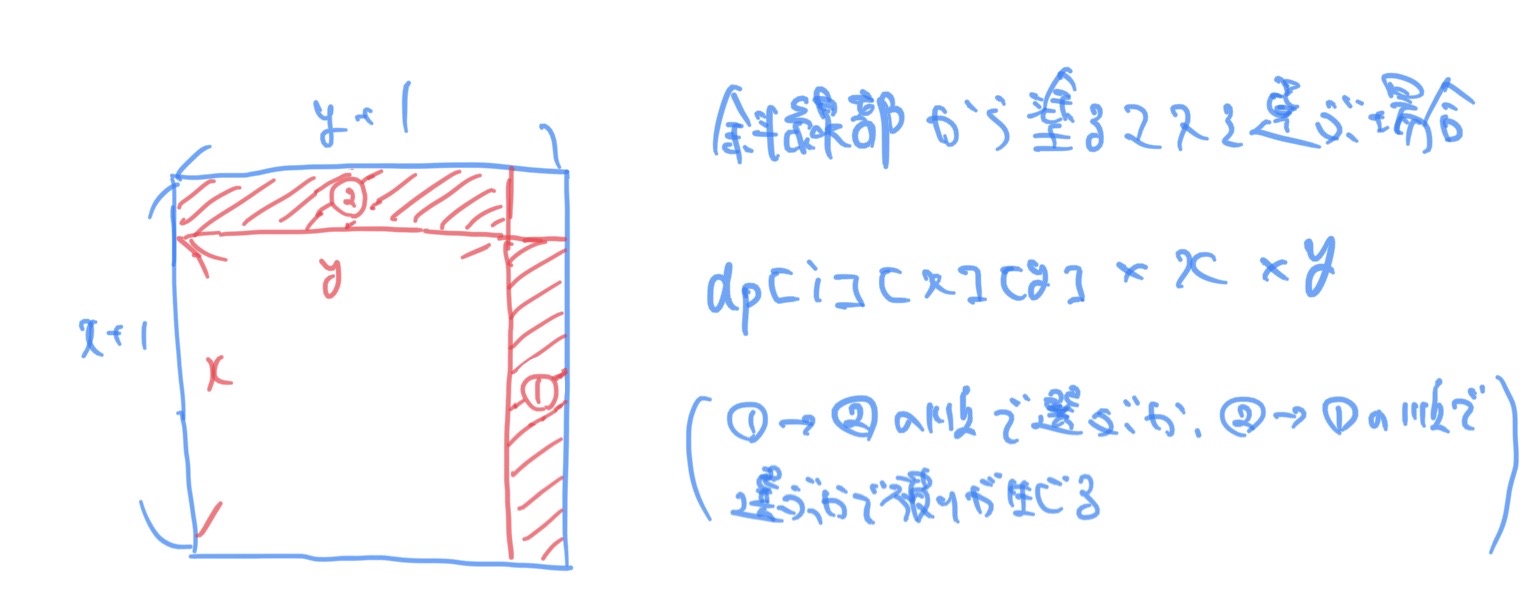 y+1
②
y
x+1
x
①
斜線部から塗るマスを選ぶ場合
dp[i][x][y] × x × y
(①→②の順で選ぶか、②→①の順で
選ぶかで被りが生じる)